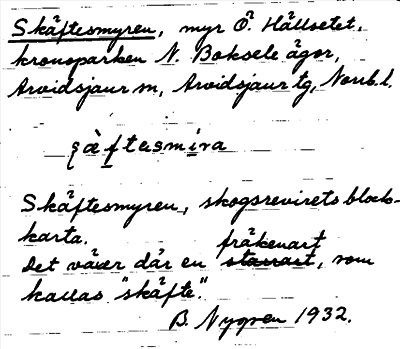 Skäftesmyren, myr Ö. Hällsetet,
kronoparken N. Boksele ägor,
Arvidsjaur sn, Arvidsjaur tg, Norrb. l.
Skäftesmyren, skogsrevirets block-
karta.
fräkenart
Det växer där en starrart, som
kallas "skäfte".
B. Nygren 1932.